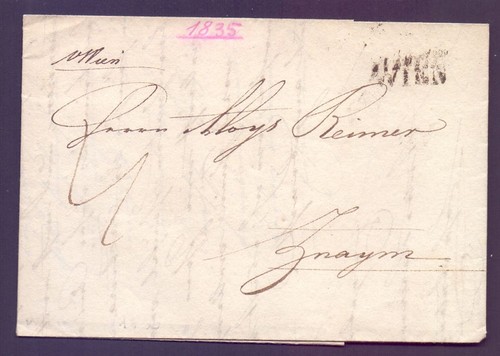 1835
v Wien
WIEN
Herrn Aloys Reimer
Znaym